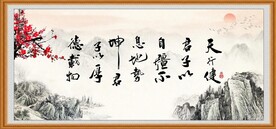 天行健
君子以
自強不
息地勢
坤君
子以厚
德載物